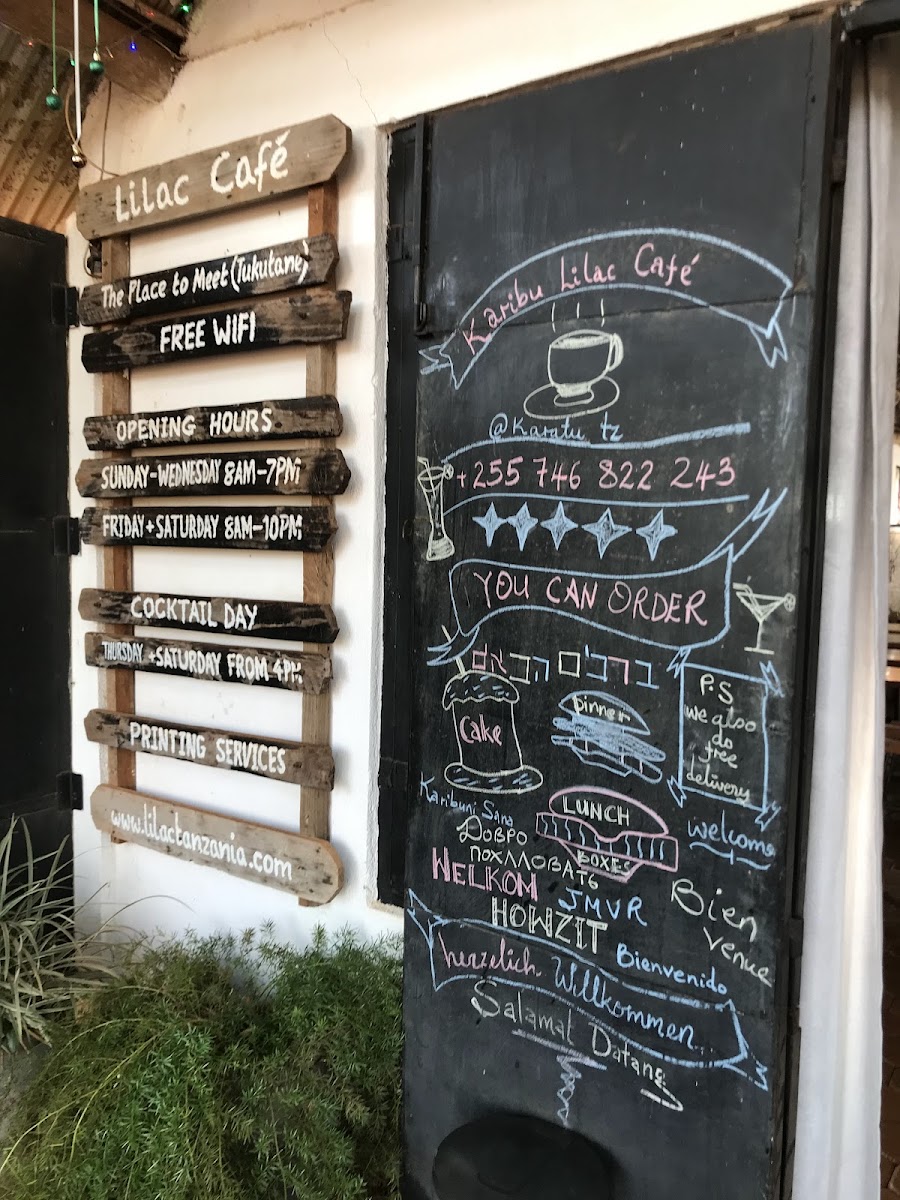 Lilac Café
The Place to Meet (Tukutane)
FREE WIFI
OPENING HOURS
SUNDAY-WEDNESDAY 8AM-7PM
FRIDAY+SATURDAY 8AM-10PM
COCKTAIL DAY
THURSDAY +SATURDAY FROM 4PM
PRINTING SERVICES
www.lilactanzania.com
Karibu Lilac Café
@Karatu tz
+255 746 822 243
YOU CAN ORDER
ברכים הבאם
Cake
Dinner
P.S
we also
do
free
delivery
Karibuni Sana
LUNCH
BOXES
welcome
ДОБРО
ПОХЛЛОВАТЬ
WELKOM
JMVR
HOWZIT
Bien
venue
Bienvenido
herzelich Willkommen
Salamat Datang